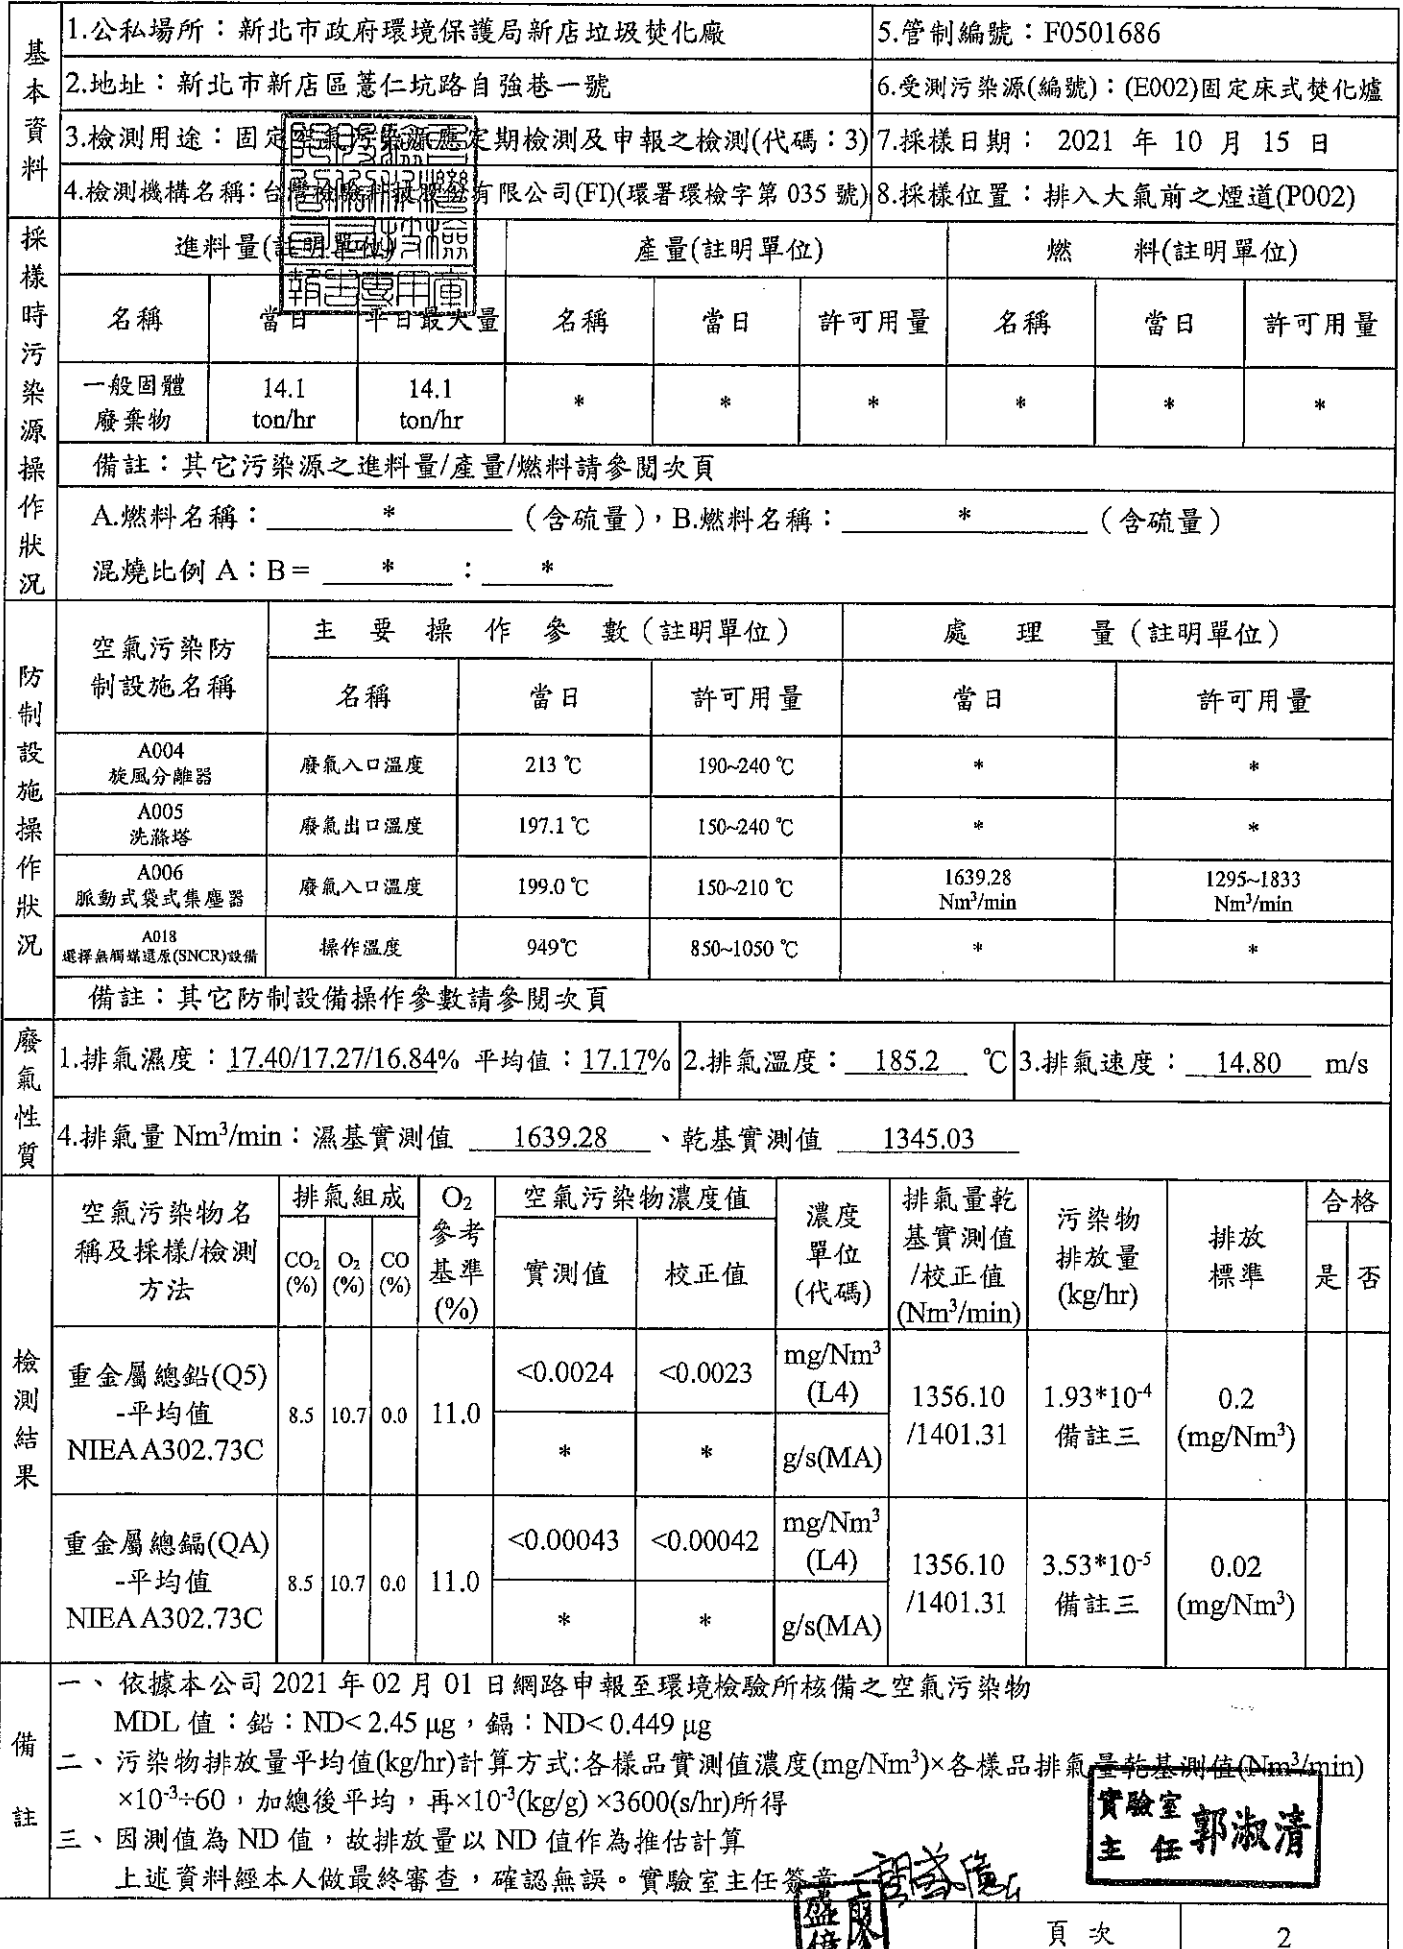 基本資料
1.公私場所：新北市政府環境保護局新店垃圾焚化廠
5.管制編號：F0501686
2.地址：新北市新店區薏仁坑路自強巷一號
6.受測污染源(編號)：(E002)固定床式焚化爐
3.檢測用途：固定空氣污染源應定期檢測及申報之檢測(代碼：3)
7.採樣日期： 2021 年 10 月 15 日
4.檢測機構名稱：台灣檢驗科技股份有限公司(FI)(環署環檢字第 035 號)
8.採樣位置：排入大氣前之煙道(P002)
採樣時污染源操作狀況
進料量(註明單位) 產量(註明單位) 燃 料(註明單位)
名稱 當日 平日最大量 名稱 當日 許可用量 名稱 當日 許可用量
一般固體廢棄物 14.1 ton/hr 14.1 ton/hr * * * * * *
備註：其它污染源之進料量/產量/燃料請參閱次頁
A.燃料名稱： * （含硫量），B.燃料名稱： * （含硫量）
混燒比例 A：B = * ： *
防制設施操作狀況
空氣污染防制設施名稱 主 要 操 作 參 數（註明單位） 處 理 量（註明單位）
名稱 當日 許可用量 當日 許可用量
A004 旋風分離器 廢氣入口溫度 213 ℃ 190~240 ℃ * *
A005 洗滌塔 廢氣出口溫度 197.1 ℃ 150~240 ℃ * *
A006 脈動式袋式集塵器 廢氣入口溫度 199.0 ℃ 150~210 ℃ 1639.28 Nm³/min 1295~1833 Nm³/min
A018 選擇無觸媒還原(SNCR)設備 操作溫度 949℃ 850~1050 ℃ * *
備註：其它防制設備操作參數請參閱次頁
廢氣性質
1.排氣濕度：17.40/17.27/16.84% 平均值：17.17% 2.排氣溫度： 185.2 ℃ 3.排氣速度： 14.80 m/s
4.排氣量 Nm³/min：濕基實測值 1639.28 、乾基實測值 1345.03
檢測結果
空氣污染物名稱及採樣/檢測方法 排氣組成 O₂參考基準(%) 空氣污染物濃度值 濃度單位(代碼) 排氣量乾基實測值/校正值(Nm³/min) 污染物排放量(kg/hr) 排放標準 合格
CO₂(%) O₂(%) CO(%) 實測值 校正值 是 否
重金屬總鉛(Q5)-平均值 NIEA A302.73C 8.5 10.7 0.0 11.0 <0.0024 <0.0023 mg/Nm³(L4) 1356.10/1401.31 1.93*10⁻⁴ 備註三 0.2 (mg/Nm³)
* * g/s(MA)
重金屬總鎘(QA)-平均值 NIEA A302.73C 8.5 10.7 0.0 11.0 <0.00043 <0.00042 mg/Nm³(L4) 1356.10/1401.31 3.53*10⁻⁵ 備註三 0.02 (mg/Nm³)
* * g/s(MA)
備註
一、依據本公司 2021 年 02 月 01 日網路申報至環境檢驗所核備之空氣污染物
MDL 值：鉛：ND< 2.45 μg，鎘：ND< 0.449 μg
二、污染物排放量平均值(kg/hr)計算方式:各樣品實測值濃度(mg/Nm³)×各樣品排氣量乾基測值(Nm³/min)
×10⁻³÷60，加總後平均，再×10⁻³(kg/g) ×3600(s/hr)所得
三、因測值為 ND 值，故排放量以 ND 值作為推估計算
上述資料經本人做最終審查，確認無誤。實驗室主任簽章
實驗室主任 郭淑清
頁次 2